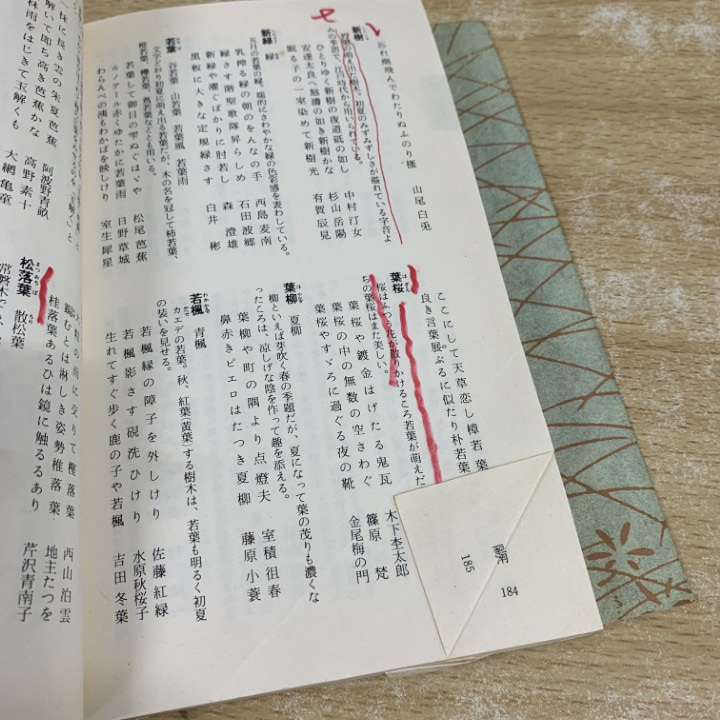 忘れ潮飛んでわたりぬふのり掻　山尾白兎
新樹
若葉の萌え出た樹木で、初夏のみずみずしさが溢れている字音よ
んの季語で、江戸時代から用いられている。
ひとりゆく新樹の夜道砥の如し　中村汀女
安達太良へ怒濤の如き新樹かな　杉山岳陽
眠る子の一室染めて新樹光　有賀辰見
新緑　緑
五月の若葉の緑。端的にさわやかな緑の色彩感を表わしている。
乳搾る緑の朝のをんなの手　西島麦南
緑さす階聖歌隊昇らしめ　石田波郷
新緑や濯ぐばかりに肘若し　森　澄雄
黒板に大きな定規緑さす　白井　彬
若葉　谷若葉　山若葉　若葉風　若葉雨
文字どおり初夏に萌え出る若葉だが、木の名を冠して柿若葉、
椎若葉、樟若葉、蔦若葉などとも用いる。
若葉して御目の雫ぬぐはゞや　松尾芭蕉
ルノアール赤くゆたかに若葉雨　日野草城
わらんべの洟もわかばを映しけり　室生犀星
ここにして天草恋し樟若葉
良き言葉展ぶるに似たり朴若葉
葉桜
桜はふつう花が散りかけるころ若葉が萌えだ
ちの葉桜はまた美しい。
葉桜や鍍金はげたる鬼瓦　木下杢太郎
葉桜の中の無数の空さわぐ　篠原　梵
葉桜やすゞろに過ぐる夜の靴　金尾梅の門
葉柳　夏柳
柳といえば芽吹く春の季題だが、夏になって葉の茂りも濃くな
ったころは、涼しげな陰を作って趣を添える。
葉柳や町の隅より点燈夫　室積徂春
鼻赤きピエロはたつき夏柳　藤原小蓑
若楓　青楓
カエデの若葉。秋、紅葉(黄葉)する樹木は、若葉も明るく初夏
の装いを見せる。
若楓緑の障子を外しけり　佐藤紅緑
若楓影さす硯洗ひけり　水原秋桜子
生れてすぐ歩く鹿の子や若楓　吉田冬葉
184
185
一抹に長き雲の朱夏芭蕉　阿波野青畝
解いて即ち高き芭蕉かな　高野素十
林雨をはじきて玉解くも　大網亀童
松落葉　散松葉
常磐木で
の雨に交りて椎落葉　西山泊雲
臨むとは淋しき姿勢椎落葉　地主たつを
桂落葉あるひは鏡に触るるあり　芹沢青南子